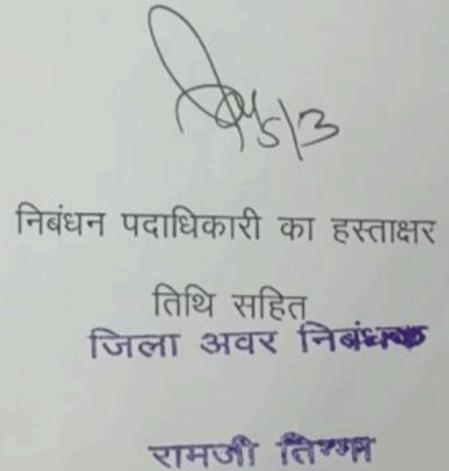 5/3
निबंधन पदाधिकारी का हस्ताक्षर
तिथि सहित
जिला अवर निबंधक
रामजी